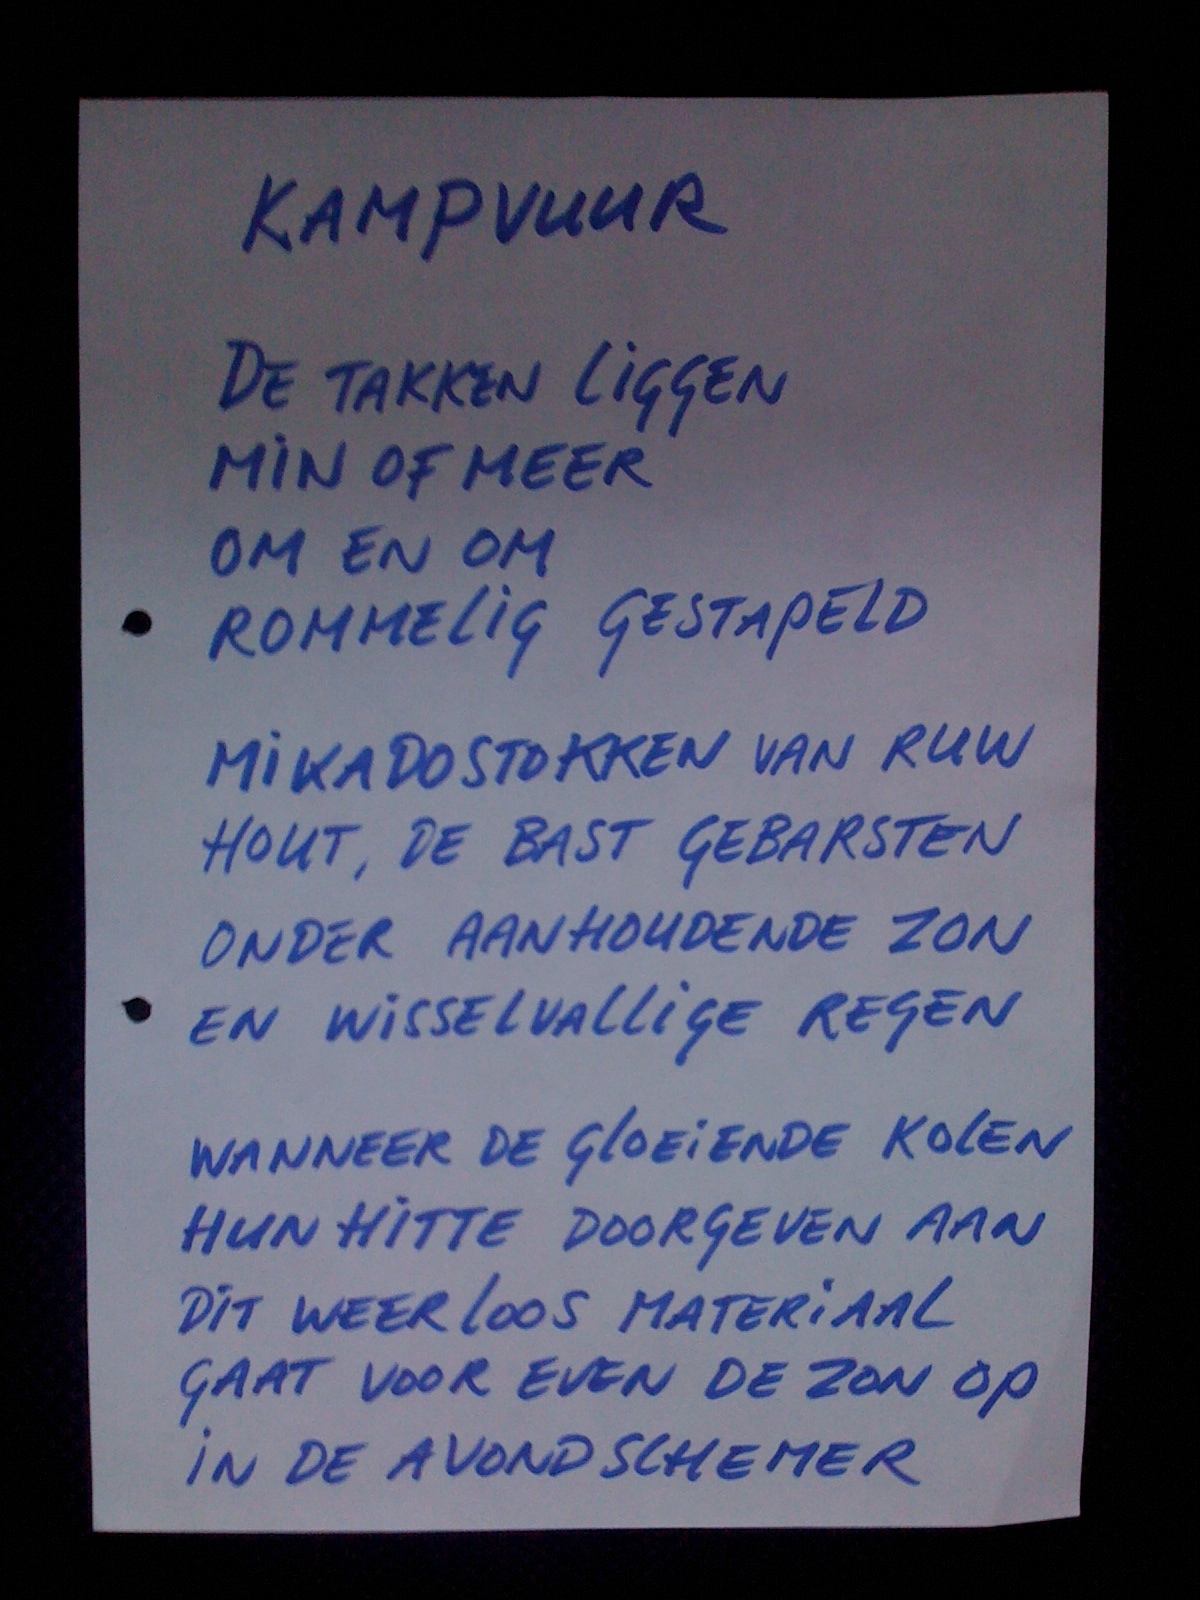 KAMPVUUR
DE TAKKEN LIGGEN
MIN OF MEER
OM EN OM
ROMMELIG GESTAPELD
MIKADOSTOKKEN VAN RUW
HOUT, DE BAST GEBARSTEN
ONDER AANHOUDENDE ZON
EN WISSELVALLIGE REGEN
WANNEER DE GLOEIENDE KOLEN
HUN HITTE DOORGEVEN AAN
DIT WEERLOOS MATERIAAL
GAAT VOOR EVEN DE ZON OP
IN DE AVONDSCHEMER